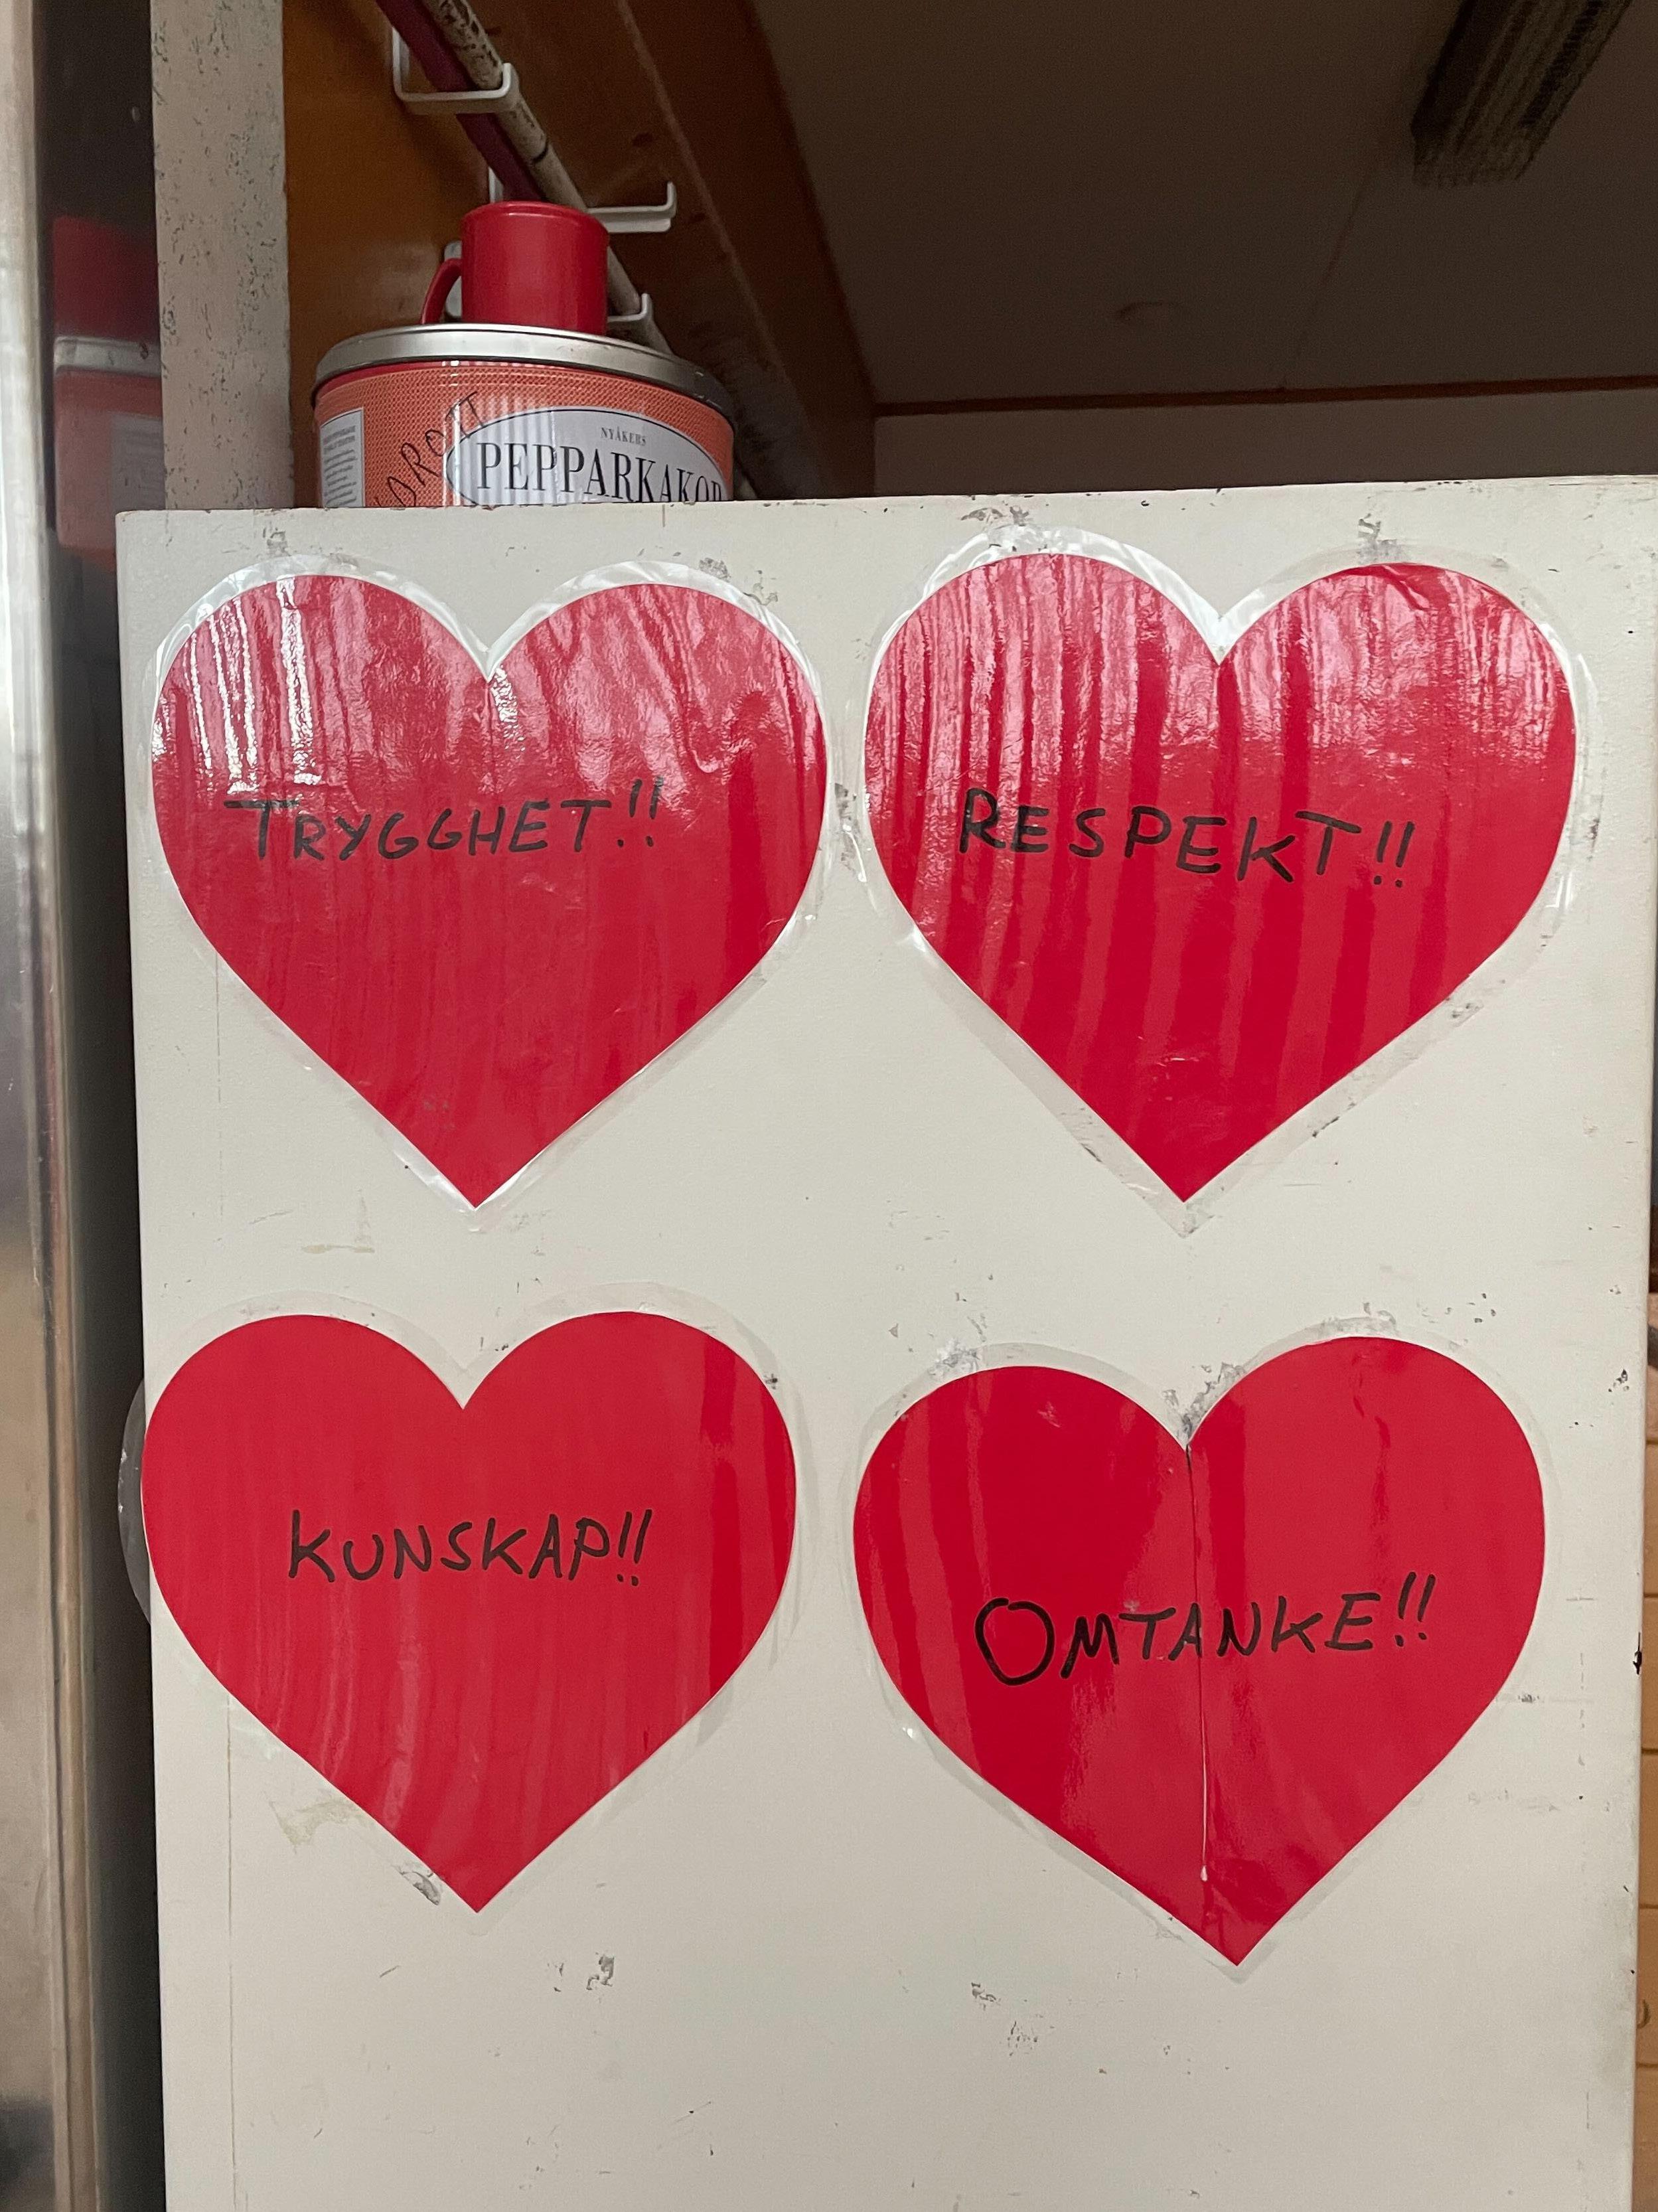 NYÅKERS
PEPPARKAKOR
TRYGGHET!!
RESPEKT!!
KUNSKAP!!
OMTANKE!!